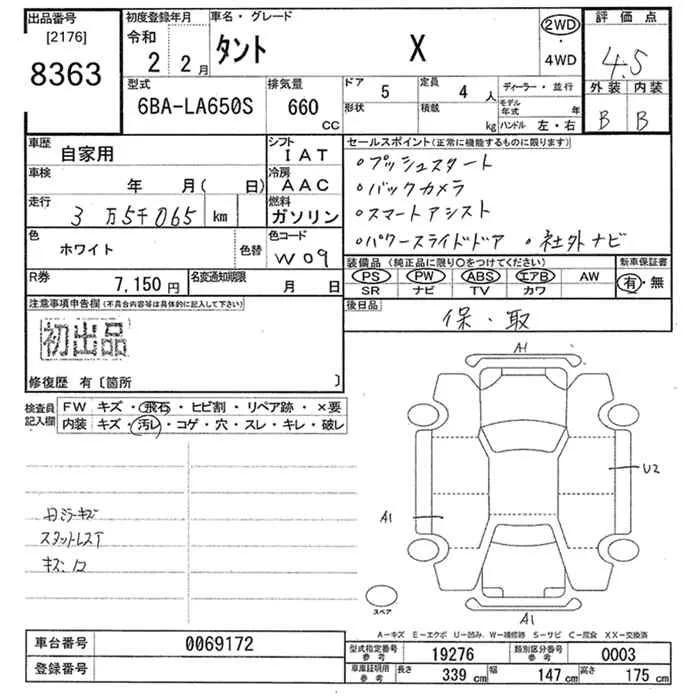 出品番号 初度登録年月 車名・グレード 評価点
[2176] 令和 2WD
8363 2 2月 タント X ・ 4.5
4WD
型式 排気量 ドア 5 定員 4人 ディーラー・並行 外装 内装
6BA-LA650S 660 CC 形状 積載 kg モデル年式 年 B B
ハンドル 左・右
車歴 自家用 シフト IAT セールスポイント(正常に機能するものに限ります)
車検 年 月( 日) 冷房 AAC 。プッシュスタート
走行 3万5千065 km 燃料 ガソリン 。バックカメラ
。スマートアシスト
色 ホワイト 色替 色コード W09 。パワースライドドア 。社外ナビ
R券 7,150円 名変通知期限 月 日 装備品(純正品に限り○をつけてください) 新車保証書
PS PW ABS エアB AW 有・無
SR ナビ TV カワ
注意事項申告欄(不具合内容等は具体的に記入して下さい) 後日品
初出品 保・取
修復歴 有〔箇所 〕
検査員記入欄 FW キズ・飛石・ヒビ割・リペア跡・×要
内装 キズ・汚レ・コゲ・穴・スレ・キレ・破レ
A1
U2
A1
キズ
スペア
A1
A-キズ E-エクボ U-凹み W-補修跡 S-サビ C-腐食 XX-交換済
車台番号 0069172 型式指定番号 参考 19276 類別区分番号 参考 0003
登録番号 車庫証明用 参考 長さ 339 cm 幅 147 cm 高さ 175 cm